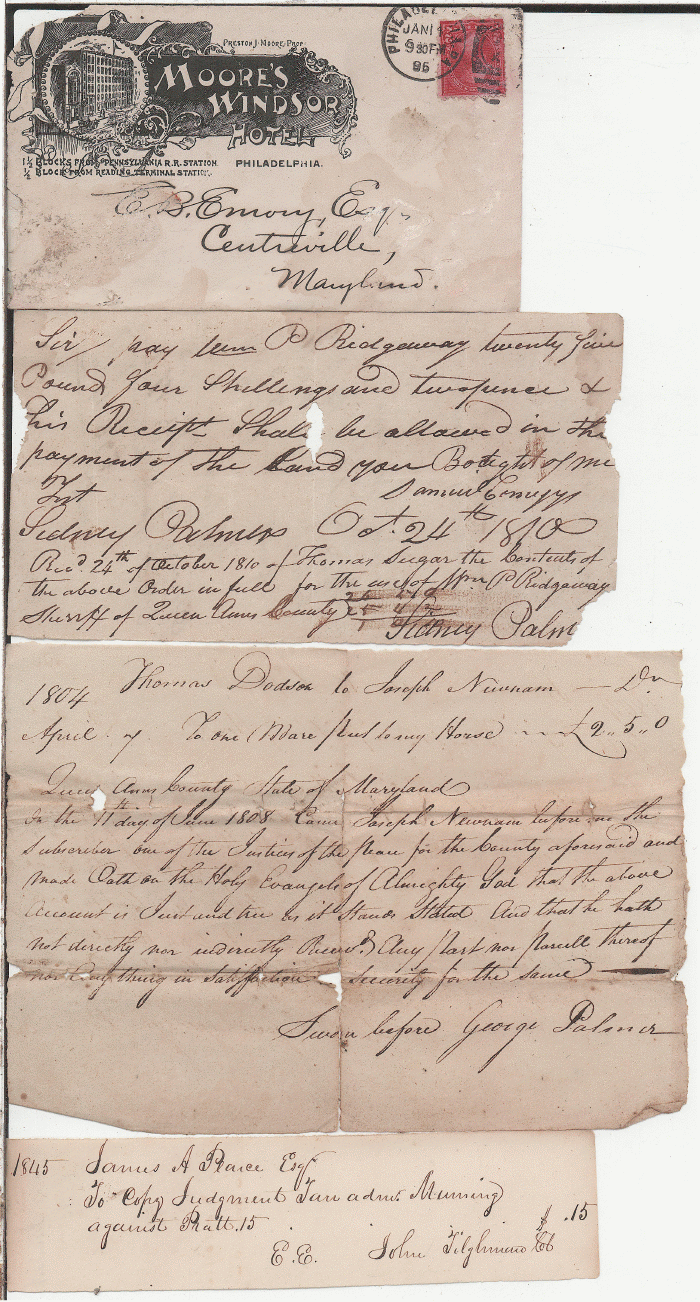 PRESTON J. MOORE, PROP.
MOORE'S
WINDSOR
HOTEL
1½ BLOCKS FROM PENNSYLVANIA R.R. STATION.
½ BLOCK FROM READING TERMINAL STATION.
PHILADELPHIA.
PHILADEL
JAN 1
9 30 PM
96
E. B. Emory, Esq.
Centreville,
Maryland.
Sir, pay Wm P Ridgaway twenty five
Pound four Shillings and twopence &
his Receipt Shall be allowed in the
payment of the Land you Bought of me
Samuel Comegys
Sidney Palmer Oct. 24th 1810
Recd. 24th of October 1810 of Thomas Sugar the Contents of
the above Order in full for the use of Wm P Ridgaway
Sheriff of Queen Anns County
Sidney Palm
1804 Thomas Dodson to Joseph Newnam — Dr
April 7 To one Mare put to my Horse £2..5..0
Queen Anns County State of Maryland
On the 11th day of June 1808 Came Joseph Newnam before me the
Subscriber one of the Justices of the peace for the County aforesaid and
made Oath on the Holy Evangels of Almighty God that the above
Account is Just and true as it Stands Stated And that he hath
not directly nor indirectly Receivd. Any Part nor Parcell thereof
nor Any thing in Satisfaction Security for the same
Sworn before George Palmer
1845 James A Pearce Esqr
To Copy Judgment admr.
against Pratt .15 $ .15
E.E. John Tilghman Clk